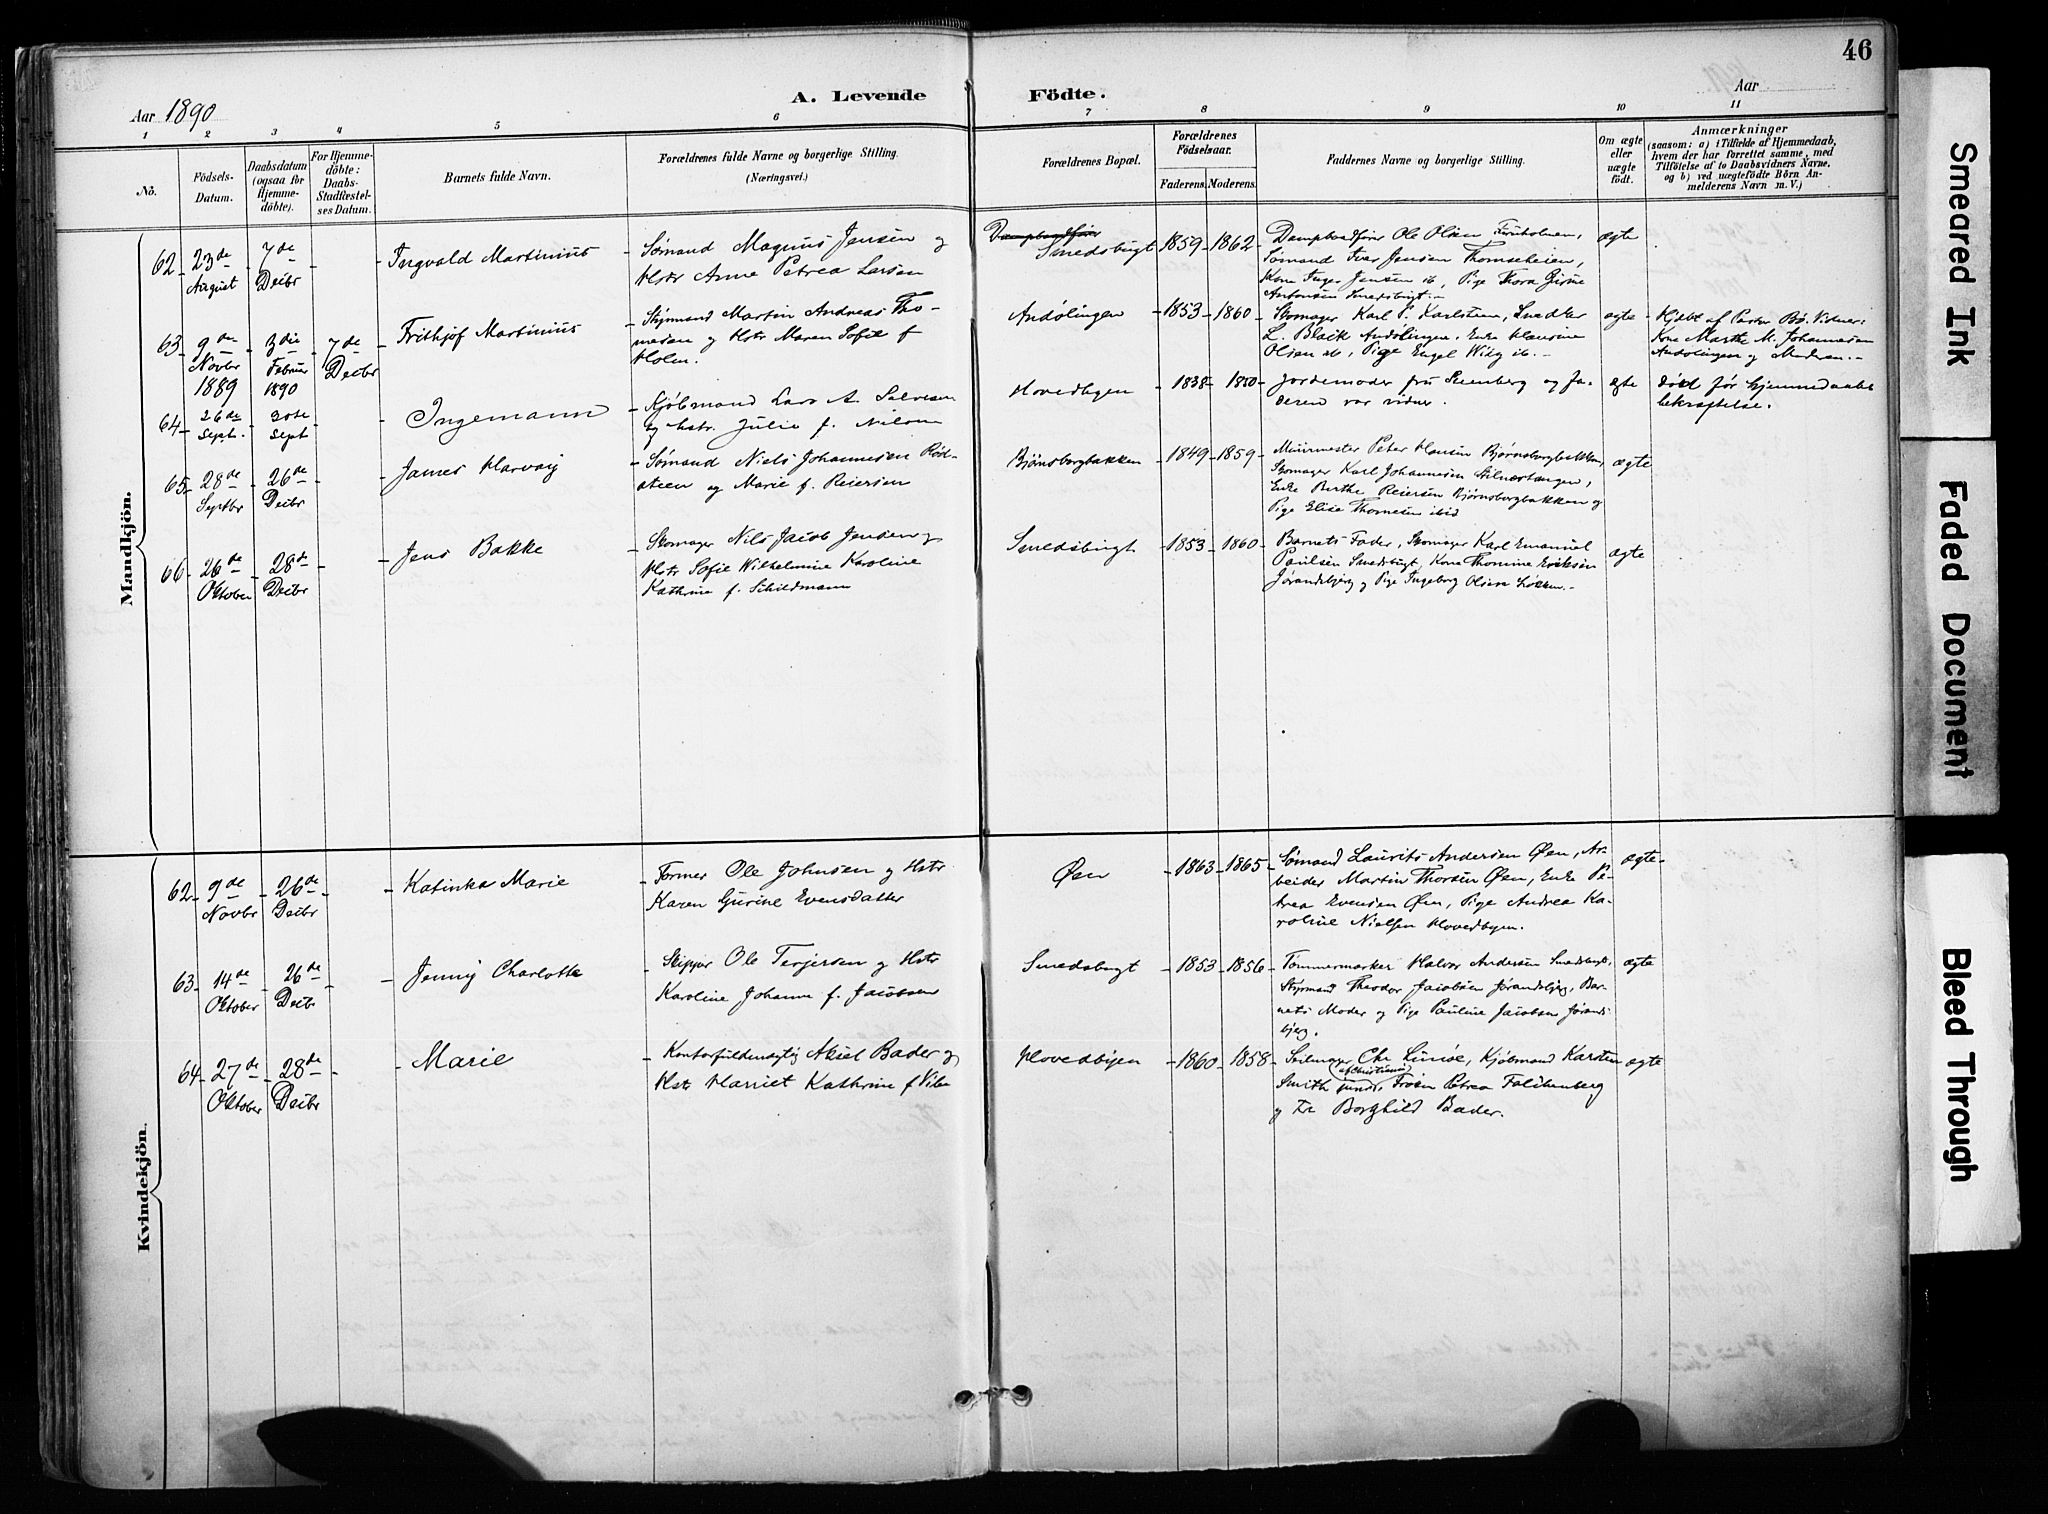 46
Aar 1890
A. Levende Födte.
Aar
1 2 3 4 5 6 7 8 9 10 11
No.
Födsels-Datum.
Daabsdatum (ogsaa for Hjemmedöbte).
For Hjemmedöbte: Daabs-Stadfæstelses Datum.
Barnets fulde Navn.
Forældrenes fulde Navne og borgerlige Stilling.
(Næringsvei.)
Forældrenes Bopæl.
Forældrenes Födselsaar.
Faderens. Moderens.
Faddernes Navne og borgerlige Stilling.
Om ægte eller uægte født.
Anmærkninger
(saasom: a) i Tilfælde af Hjemmedaab, hvem der har forrettet samme, med Tilföielse af to Daabsvidners Navne, og b) ved uægtefödte Börn Anmelderens Navn m. V.)
Mandkjön.
62 23de August 7de Decbr Ingvald Martinius
Sømand Magnus Jensen og
Hstr Anne Petrea Larsen
Smedsbugt 1859 1862
Dampbaadfører Ole Olsen
Sømand Iver Jensen Thomseheien,
Kone Inger Jensen ib, Pige Thora
Antonsen Smedsbugt.
ægte
63 9de Novbr 1889 3die Februar 1890 7de Decbr Frithjof Martinius
Styrmand Martin Andreas Tho-
mesen og Hstr Maren Sofie f
Holm.
Andølingen 1853 1860
Skomager Karl P. Karlsten,
L. Black Andølingen, Enke Hansine
Olsen ib, Pige Engel Wiig ib.
ægte
Hjdbt af Pastor Bø. Vidner:
Kone Marthe M. Johannesen
Andølingen og Moderen.
64 26de Sept. 30te Sept Ingemann
Kjøbmand Lars A. Salvesen
og Hstr. Julie f. Nilsen
Hovedbyen 1838 1850
Jordemoder fru Steenberg og Fa-
deren var vidner.
ægte
død før hjemmedaabs
bekræftelse.
65 28de Septbr 26de Decbr James Harvaig
Sømand Niels Johannesen Rød-
steen og Marie f. Reiersen
Bjørnsborgbakken 1849 1859
Muurmester Peter Hansen Bjørnsborgbakken,
Skomager Karl Johannesen Stilnæstangen,
Enke Berthe Reiersen Bjørnsborgbakken og
Pige Elise Thomesen ibid
ægte
66 26de Oktober 28de Decbr Jens Bakke
Skomager Nils Jacob Jensen og
Hstr Sofie Wilhelmine Karoline
Kathrine f. Schildmann
Smedsbugt 1853 1860
Barnets Fader, Skomager Karl Emanuel
Paulsen Smedsbugt, Kone Thomine Eriksen
Jørandsbjerg og Pige Ingeborg Olsen Løkken.
ægte
Kvindekjön.
62 9de Novbr 26de Decbr Katinka Marie
Former Ole Johnsen og Hstr
Karen Gurine Evensdatter
Øen 1863 1865
Sømand Laurits Andersen Øen, Ar-
beider Martin Thorsen Øen, Enke Pe-
trea Evensen Øen, Pige Andrea Ka-
roline Nielsen Hovedbyen.
ægte
63 14de Oktober 26de Decbr Jenny Charlotte
Skipper Ole Terjersen og Hstr
Karoline Johanne f. Jacobsen
Smedsbugt 1853 1856
Tømmermarker Halvor Andersen Smedsbugt,
Styrmand Theodor Jacobsen Jørandsbjerg, Bar-
nets Moder og Pige Pauline Jacobsen Jørands
bjerg.
ægte
64 27de Oktober 28de Decbr Marie
Kontorfuldmægtig Aksel Bader og
Hstr Harriet Kathrine f Vibe
Hovedbyen 1860 1858
Seilmager Chr Lunøe, Kjøbmand Karsten
Smith jun., Frøken Petrea Falchenberg
og Fr. Borghild Bader.
ægte
Smeared Ink
Faded Document
Bleed Through